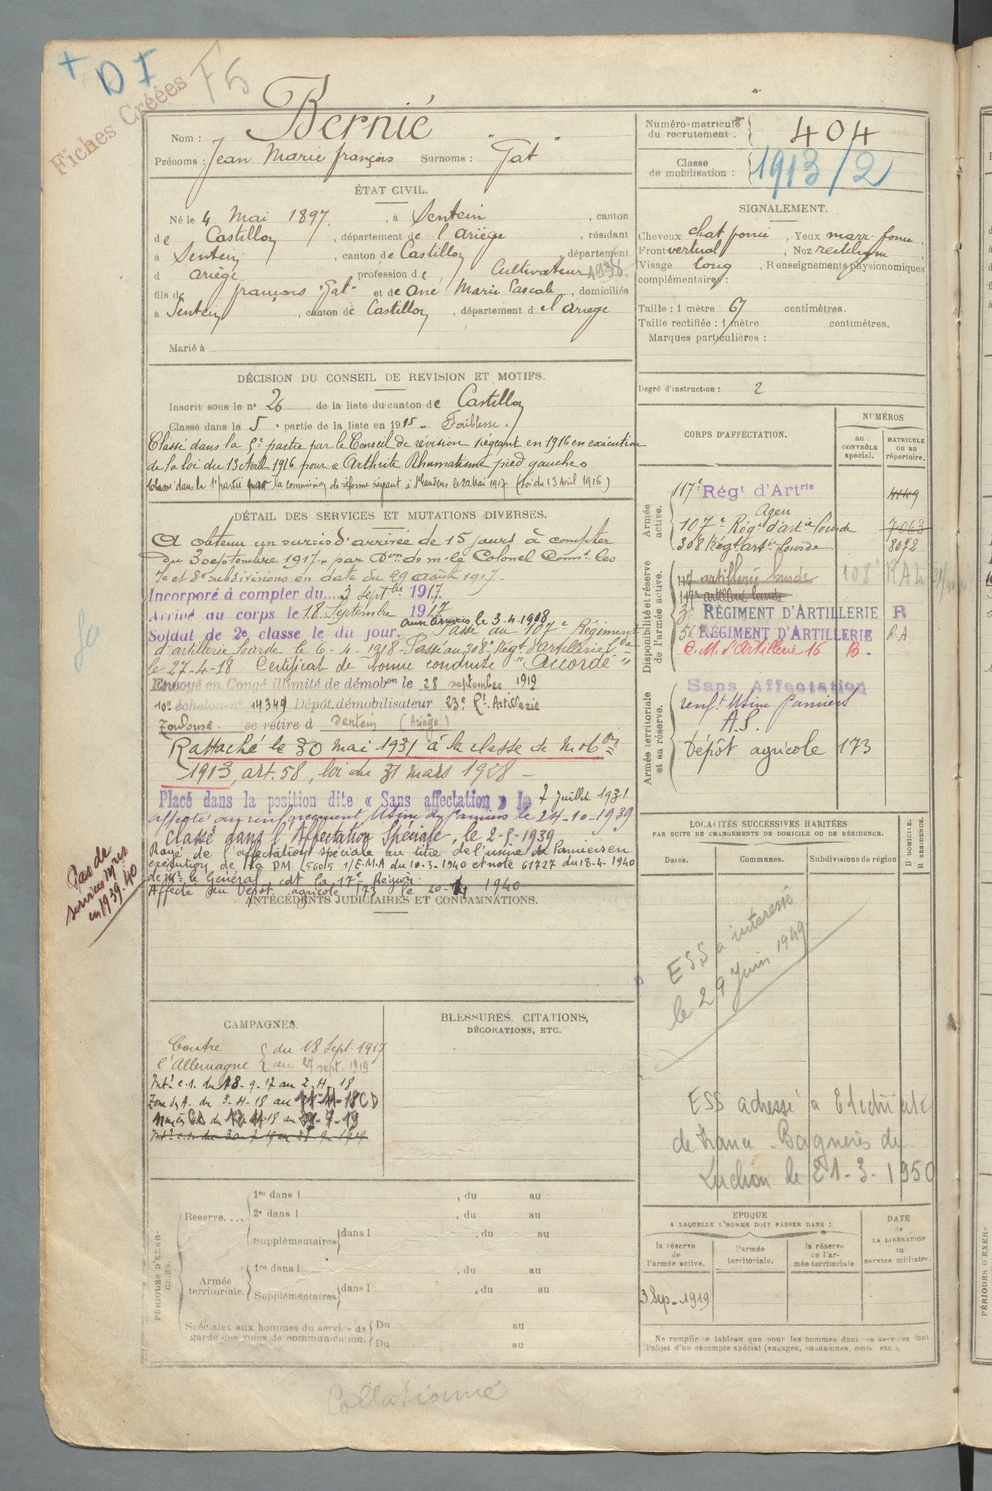 + D I F5
Fiches Créées
Nom : Bernié
Prénoms : Jean Marie françois Surnoms : "Gat"
Numéro matricule du recrutement : 404
Classe de mobilisation : 1913/2
ÉTAT CIVIL.
Né le 4 Mai 1897, à Sentein, canton
de Castillon, département de l'Ariège, résidant
à Sentein, canton de Castillon, département
d ariège, profession de Cultivateur
fils de françois "Gat" et de Marie Pascale, domiciliés
à Sentein, canton de Castillon, département de l'ariege
Marié à
SIGNALEMENT.
Cheveux chat foncé, Yeux marr. foncé
Front vertical, Nez rectiligne
Visage long, Renseignements physionomiques
complémentaires :
Taille : 1 mètre 67 centimètres.
Taille rectifiée : 1 mètre centimètres.
Marques particulières :
Degré d'instruction : 2
DÉCISION DU CONSEIL DE REVISION ET MOTIFS.
Inscrit sous le n° 26 de la liste du canton de Castillon
Classé dans la 5e partie de la liste en 1915. Faiblesse.
Classé dans la 5e partie par le Conseil de révision siégeant en 1916 en exécution
de la loi du 13 Avril 1916 pour « Arthrite Rhumatisme pied gauche »
Classé dans la 1e partie par la commission de réforme siégeant à le 22 Mai 1917 (Loi du 13 Avril 1916)
DÉTAIL DES SERVICES ET MUTATIONS DIVERSES.
A obtenu un sursis d'arrivée de 15 jours à compter
du 3 septembre 1917, par Don de m. le Colonel Comt les
7e et 8e subdivisions en date du 29 août 1917.
Incorporé à compter du 3 septbre 1917.
Arrivé au corps le 18 Septembre 1917
Soldat de 2e classe le dit jour. aux armées le 3-4-1918 Passé au 107e Régiment
d'artillerie lourde le 6-4-1918. Passé au 308e Régt d'artillerie Lde
le 27-4-18 Certificat de bonne conduite "Accordé"
Envoyé en Congé illimité de démobon le 28 septembre 1919
10e échelon n° 14349 Dépôt démobilisateur 23e Rt. Artillerie
Toulouse. se retire à Sentein (Ariège)
Rattaché le 30 mai 1931 à la classe de mobon
1913, art. 58, loi du 31 mars 1928
Placé dans la position dite « Sans affectation » le 7 juillet 1931
affecté au renforcement Usine de Pamiers le 24-10-1939
Classé dans l'Affectation Spéciale, le 2-9-1939
Rayé de l'affectation spéciale au titre de l'usine de Pamiers en
exécution de la DM 5601S 1/E.M.A du 10-3-1940 et note 61727 du 18-4-1940
de Mr le Général cdt la 17e Région
Affecté au Dépôt agricole 173 le 1940
Pas de services Mres en 1939-40
ANTÉCÉDENTS JUDICIAIRES ET CONDAMNATIONS.
CORPS D'AFFECTATION.
NUMÉROS
au contrôle spécial.
matricule ou au répertoire.
Armée active.
117e Régt d'Artrie
Agen
107e Régt d'artie lourde
308 Régt artie lourde 8072
Disponibilité et réserve de l'armée active.
117 artillerie lourde 108e R A L
117e artillerie lourde
3e RÉGIMENT D'ARTILLERIE R
56 RÉGIMENT D'ARTILLERIE R A
C. M. d'Artillerie 16 B.
Armée territoriale et sa réserve.
Sans Affectation
renft Usine Pamiers
A.S.
Dépôt agricole 173
LOCALITÉS SUCCESSIVES HABITÉES
PAR SUITE DE CHANGEMENTS DE DOMICILE OU DE RÉSIDENCE.
Dates. Communes. Subdivisions de région
D DOMICILE. R RÉSIDENCE.
ESS à interessé
le 29 Juin 1949
ESS adressé à Electricité
de France Bagnères de
Luchon le 21-3-1950
CAMPAGNES.
Contre l'Allemagne du 18 Sept. 1917
au 27 sept. 1919
Intr c.s. du 18-9-17 au 2-4-18
BLESSURES, CITATIONS,
DÉCORATIONS, ETC.
PÉRIODES D'EXERCICES.
Réserve....
1re dans l , du au
2e dans l , du au
Supplémentaires dans l , du au
Armée territoriale.
1re dans l , du au
Supplémentaires dans l , du au
Spéciales aux hommes du service de garde des voies de communication.
Du au
Du au
EPOQUE
A LAQUELLE L'HOMME DOIT PASSER DANS :
la réserve de l'armée active.
l'armée territoriale.
la réserve de l'armée territoriale
DATE de LA LIBÉRATION du service militaire.
3 Sep-1919
Ne remplir ce tableau que pour les hommes dont les services font
l'objet d'un décompte spécial (engagés, condamnés, omis. etc.).
Collationné